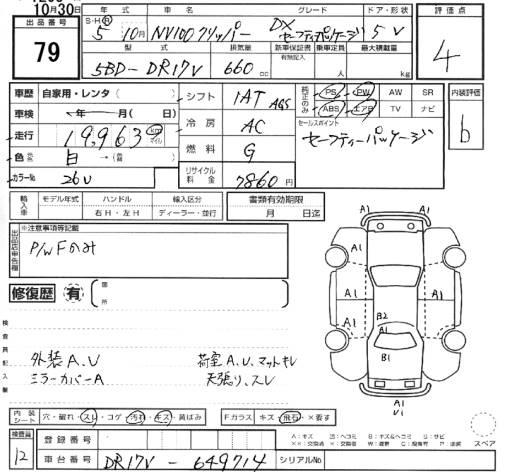 10月30日
出品番号
79
年式 車名 グレード ドア・形状
S・H・R 5年 10月 NV100クリッパー DX セーフティパッケージ 5V
型式 排気量 新車保証書 有無記入 乗車定員 最大積載量
5BD-DR17V 660cc 人 kg
評価点
4
内装評価
b
車歴 自家用・レンタ( )
車検 年 月( 日)
走行 19,963 km マイル
色 白 → ( )
カラーNo. 26U
シフト IAT AGS
冷房 AC
燃料 G
リサイクル料金 7860円
純正のみ PS PW AW SR
ABS エアB TV ナビ
セールスポイント
セーフティーパッケージ
輸入車 モデル年式 ハンドル 輸入区分
右H・左H ディーラー・並行
書類有効期限
月 日迄
出品店申告欄
※注意事項等記載
P/WFのみ
修復歴 有 箇所
検査員記入欄
外装A.U 荷室A.U.マットキレ
ミラーカバーA 天張り.スレ
A1
A1 A1
A1 A1
A1 A1
B2
A1
B1
A1
U1
内装シート 穴・破れ・スレ・コゲ・汚れ・キズ・黄ばみ Fガラス キズ・飛石・×要す
A:キズ U:ヘコミ B:キズ&ヘコミ S:サビ
スペア
検査員
12
登録番号
車台番号 DR17V-649714 シリアルNo